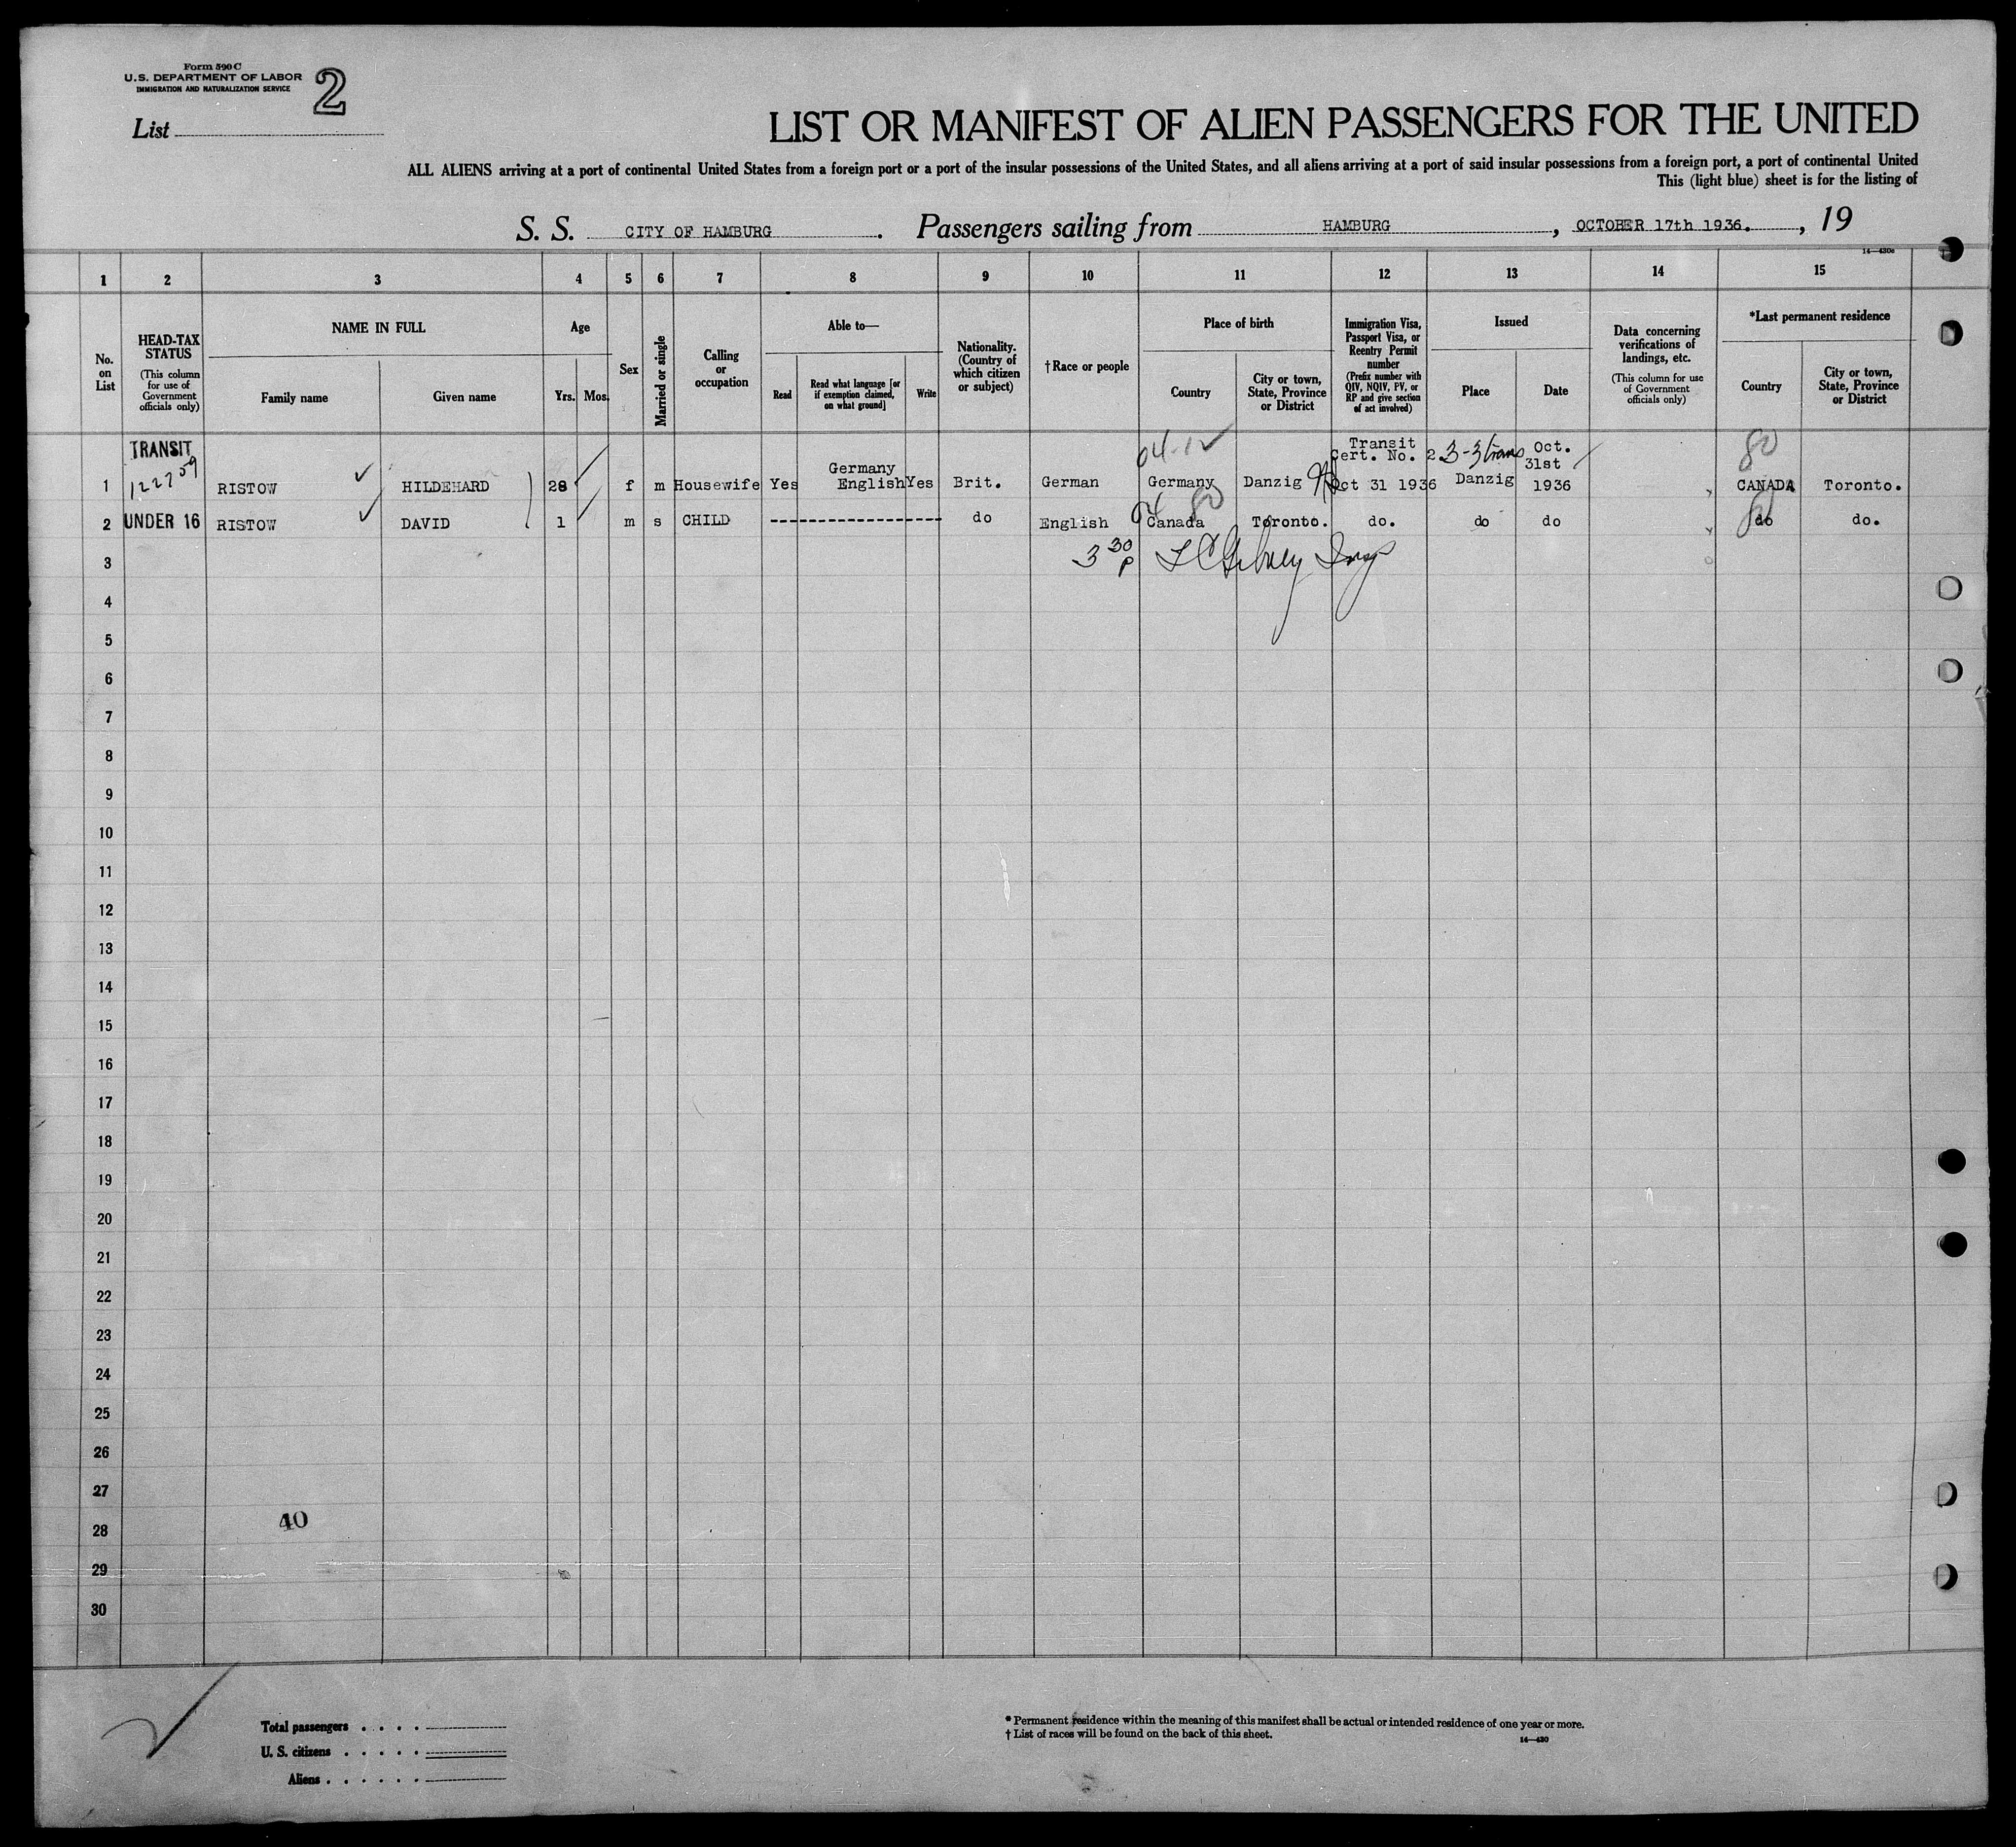 Form 590 C
U.S. DEPARTMENT OF LABOR
IMMIGRATION AND NATURALIZATION SERVICE
2
List
LIST OR MANIFEST OF ALIEN PASSENGERS FOR THE UNITED
ALL ALIENS arriving at a port of continental United States from a foreign port or a port of the insular possessions of the United States, and all aliens arriving at a port of said insular possessions from a foreign port, a port of continental United
This (light blue) sheet is for the listing of
S. S. CITY OF HAMBURG. Passengers sailing from HAMBURG, OCTOBER 17th 1936., 19
14—430c
1 2 3 4 5 6 7 8 9 10 11 12 13 14 15
No. on List
HEAD-TAX STATUS
(This column for use of Government officials only)
NAME IN FULL
Family name
Given name
Age
Yrs. Mos.
Sex
Married or single
Calling or occupation
Able to—
Read
Read what language [or if exemption claimed, on what ground]
Write
Nationality. (Country of which citizen or subject)
†Race or people
Place of birth
Country
City or town, State, Province or District
Immigration Visa, Passport Visa, or Reentry Permit number
(Prefix number with QIV, NQIV, PV, or RP and give section of act involved)
Issued
Place
Date
Data concerning verifications of landings, etc.
(This column for use of Government officials only)
*Last permanent residence
Country
City or town, State, Province or District
TRANSIT
122759
04-12
Transit
Cert. No. 2.
3-3 trans
Oct.
31st
80
Germany
1 RISTOW HILDEHARD 28 f m Housewife Yes English Yes Brit. German Germany Danzig Oct 31 1936 Danzig 1936 CANADA Toronto.
04 80
80
2 UNDER 16 RISTOW DAVID 1 m s CHILD ------------------ do English Canada Toronto. do. do do do do.
3
3 30 P
4
5
6
7
8
9
10
11
12
13
14
15
16
17
18
19
20
21
22
23
24
25
26
27
40
28
29
30
Total passengers . . . .
U. S. citizens . . . . .
Aliens . . . . . .
* Permanent residence within the meaning of this manifest shall be actual or intended residence of one year or more.
† List of races will be found on the back of this sheet.
14—430